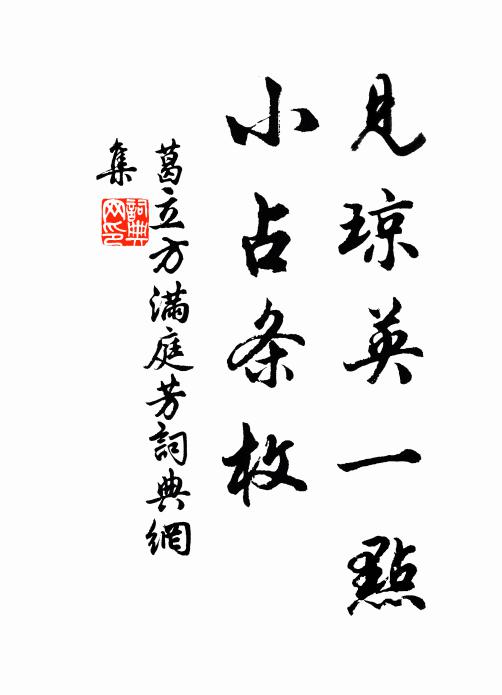 见琼英一點
小占条枚
葛立方滿庭芳詞典網
集
詞典
网印